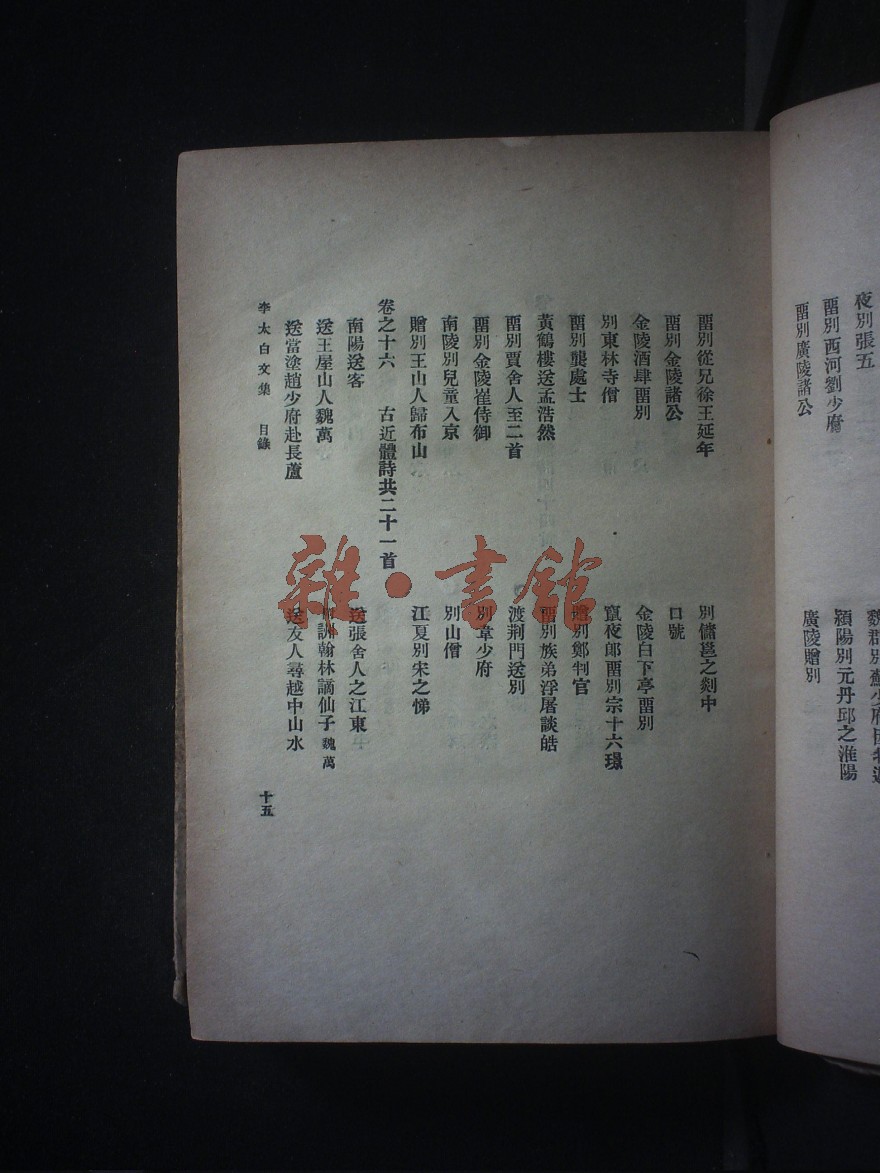 夜別張五
畱別西河劉少府
潁陽別元丹邱之淮陽
畱別廣陵諸公
廣陵贈別
畱別從兄徐王延年
別儲邕之剡中
畱別金陵諸公
口號
金陵酒肆畱別
金陵白下亭畱別
別東林寺僧
竄夜郎畱別宗十六璟
畱別龔處士
贈別鄭判官
黃鶴樓送孟浩然
畱別族弟浮屠談皓
畱別賈舍人至二首
渡荆門送別
畱別金陵崔侍御
別韋少府
南陵別兒童入京
別山僧
贈別王山人歸布山
江夏別宋之悌
卷之十六 古近體詩共二十一首
南陽送客
送張舍人之江東
送王屋山人魏萬
訓翰林謫仙子 魏萬
送當塗趙少府赴長蘆
送友人尋越中山水
李太白文集 目錄 十五
雜·書館